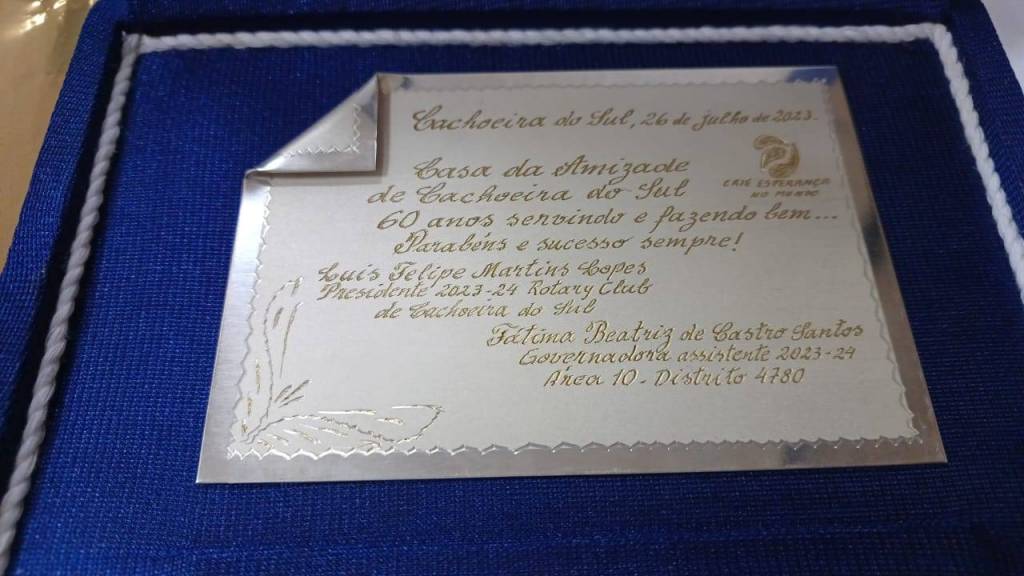 Cachoeira do Sul, 26 de julho de 2023.
CRIE ESPERANÇA
NO MUNDO
Casa da Amizade
de Cachoeira do Sul
60 anos servindo e fazendo bem...
Parabéns e sucesso sempre!
Luis Felipe Martins Lopes
Presidente 2023-24 Rotary Club
de Cachoeira do Sul
Fátima Beatriz de Castro Santos
Governadora assistente 2023-24
Área 10 - Distrito 4780